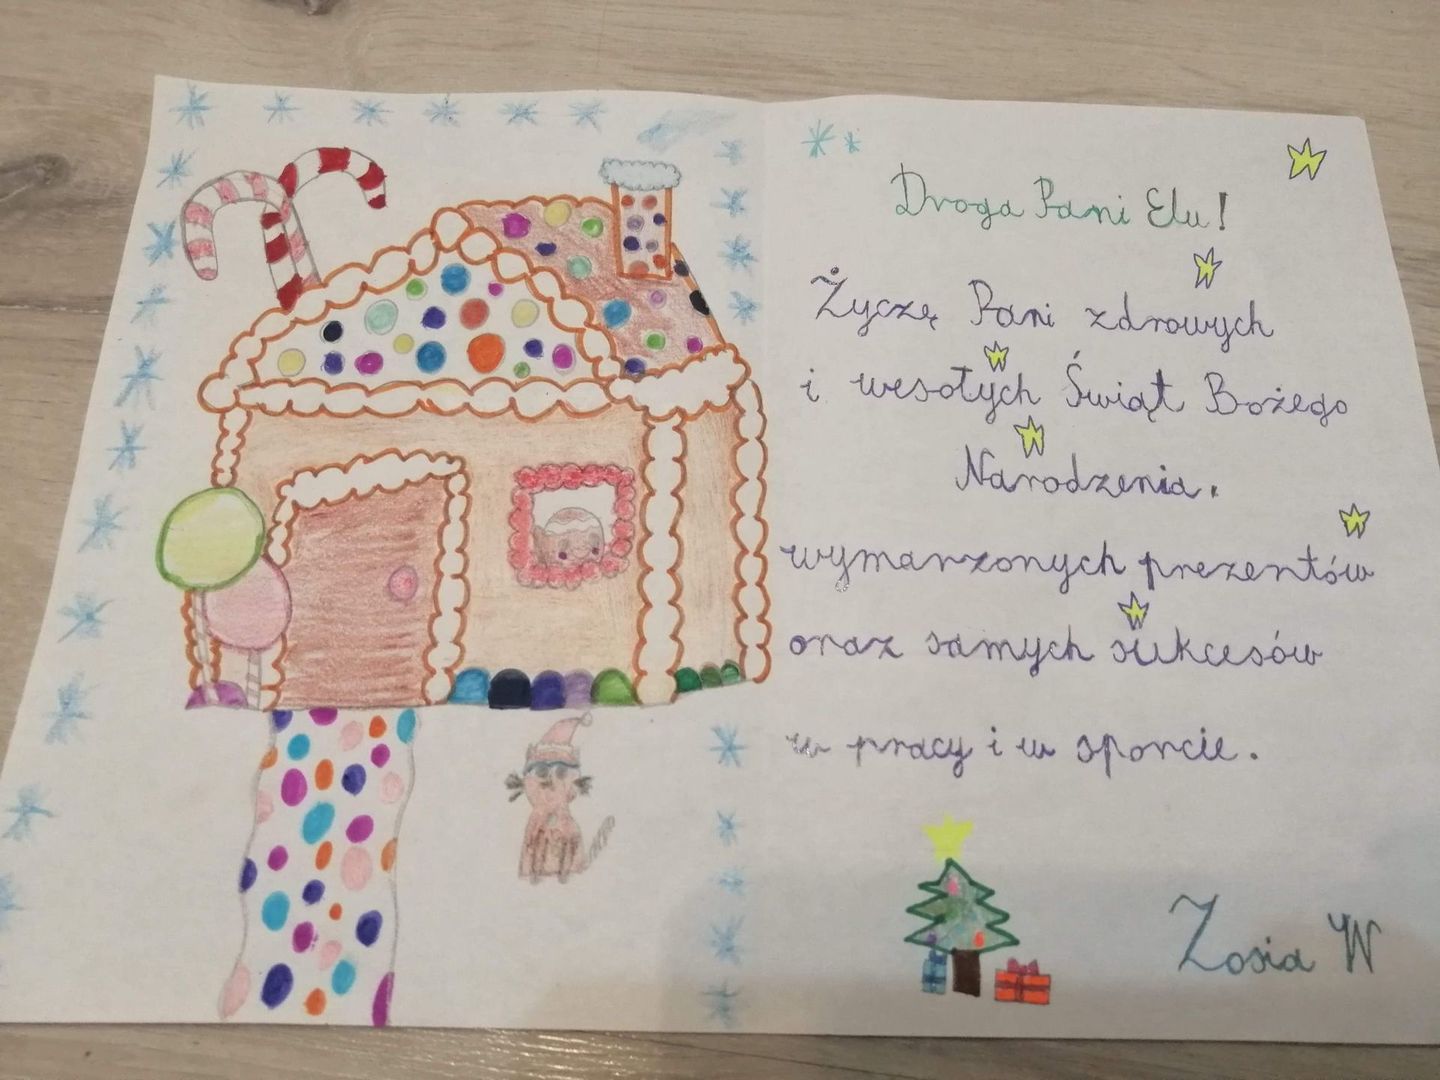 Droga Pani Elu!
Życzę Pani zdrowych
i wesołych Świąt Bożego
Narodzenia.
wymarzonych prezentów
oraz samych sukcesów
w pracy i w sporcie.
Zosia W